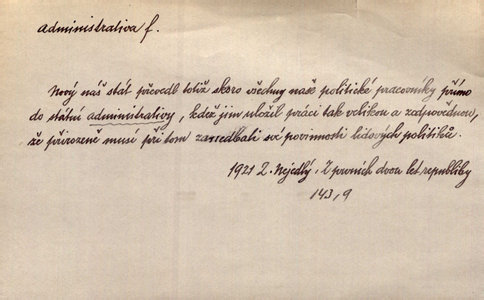 administrativa f.
Nový náš stát převedl totiž skoro všechny naše politické pracovníky přímo
do státní administrativy, kdež jim uložil práci tak velikou a zodpovědnou,
že přirozeně musí při tom zanedbati své povinnosti lidových politiků.
1921 Z. Nejedlý, Z prvních dvou let republiky
143, 9